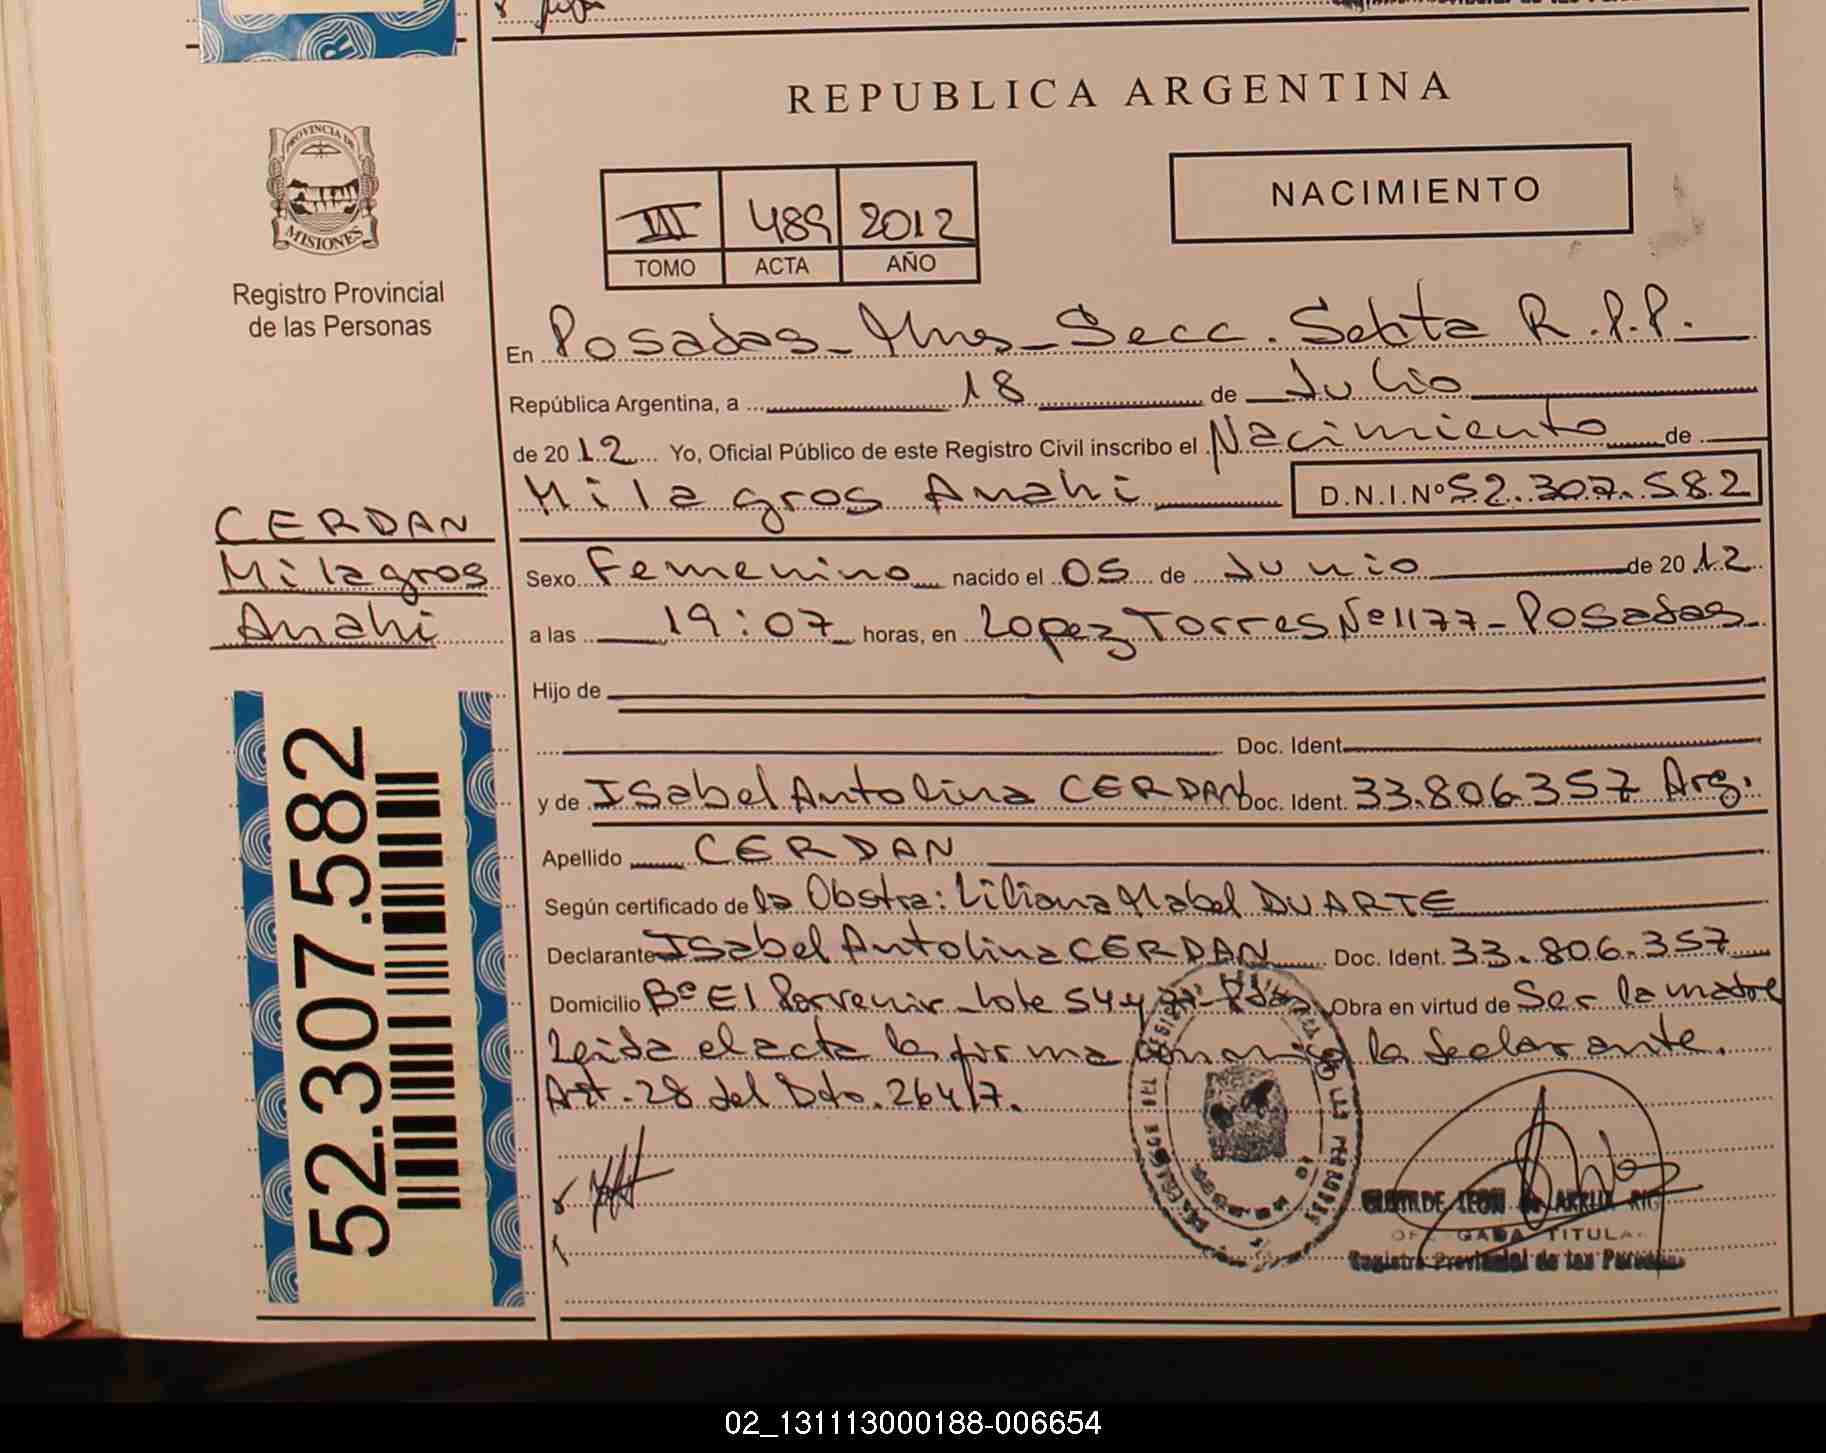 REPUBLICA ARGENTINA
PROVINCIA DE
MISIONES
Registro Provincial
de las Personas
III 489 2012
TOMO ACTA AÑO
NACIMIENTO
En Posadas - Mnes - Secc. Sexta R.P.P.
República Argentina, a 18 de Julio
de 2012 Yo, Oficial Público de este Registro Civil inscribo el Nacimiento de
Milagros Anahi D.N.I.Nº 52.307.582
CERDAN
Milagros
Anahi
Sexo Femenino nacido el 05 de Junio de 2012
a las 19:07 horas, en Lopez Torres Nº 1177 - Posadas
Hijo de
Doc. Ident.
y de Isabel Antolina CERDAN Doc. Ident. 33.806.357 Arg.
Apellido CERDAN
Según certificado de la Obstra: Liliana Mabel DUARTE
Declarante Isabel Antolina CERDAN Doc. Ident. 33.806.357
Domicilio Bº El Porvenir - Lote 54 Obra en virtud de Ser la madre
Leida el acta la firma conmigo la declarante.
Art. 28 del Dto. 264/7.
52.307.582
TITULAR
Registro Provincial de las Personas
02_131113000188-006654